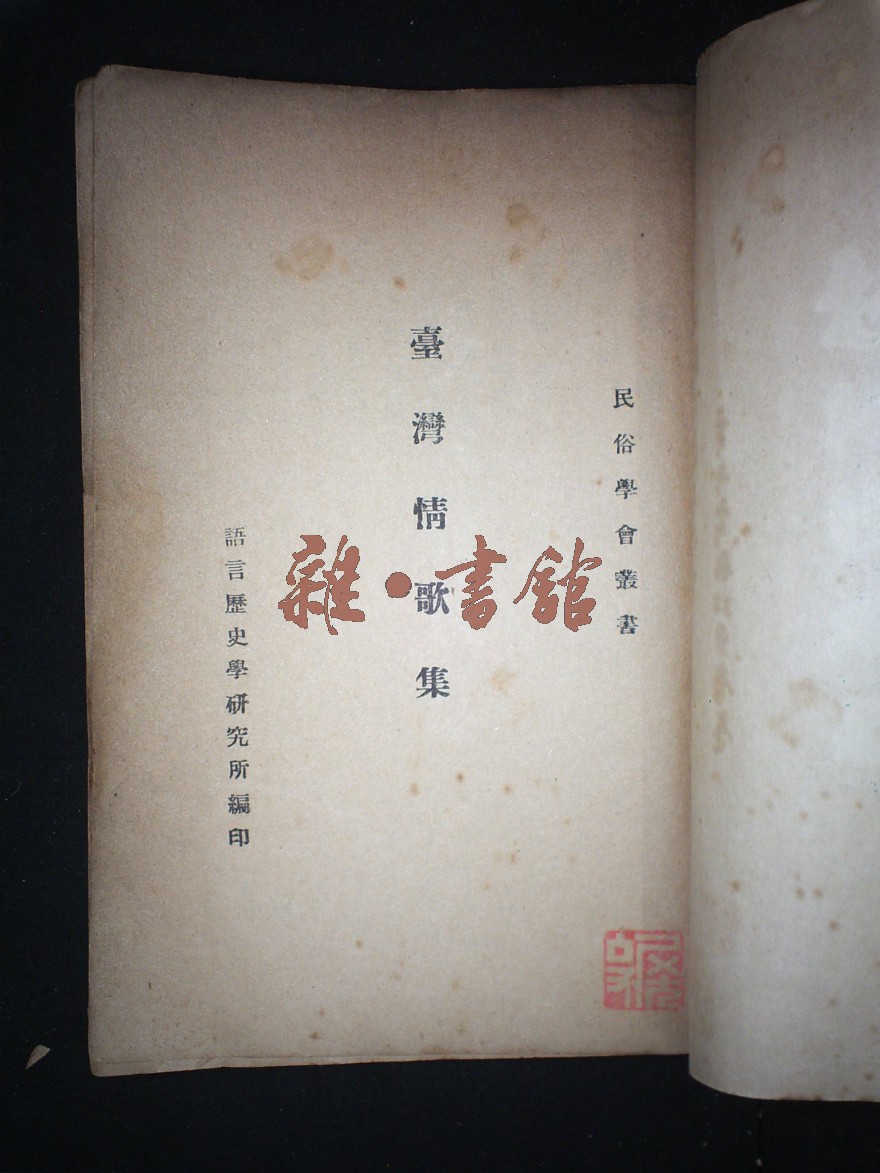 民俗學會叢書
臺灣情歌集
語言歷史學研究所編印
雜·書館